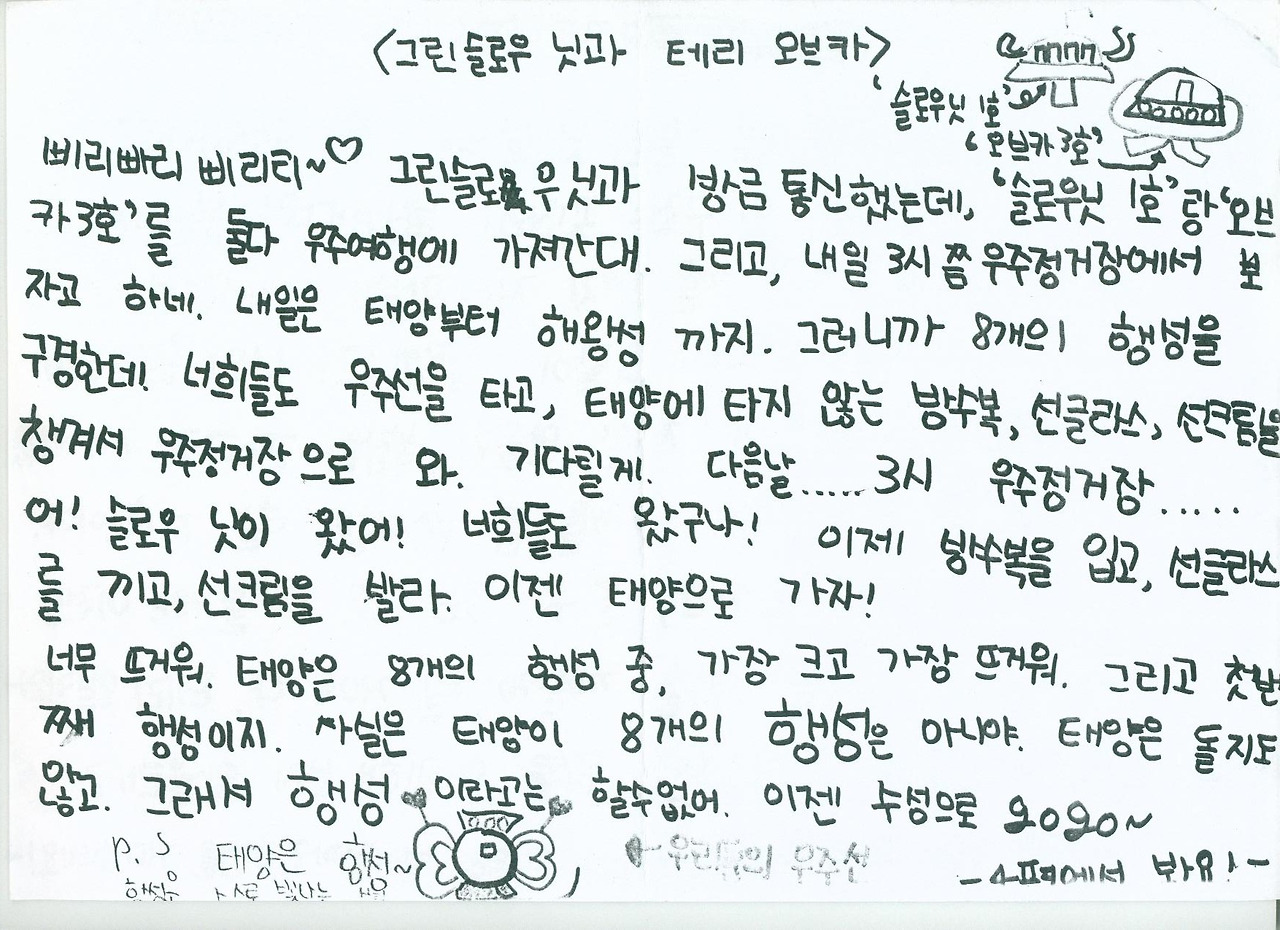 <그린슬로우 닛과 테리 오브카>
'슬로우닛 1호'
'오브카 3호'
삐리빠리 삐리티~♡ 그린슬로우닛과 방금 통신했는데, '슬로우닛 1호'랑 '오브
카 3호'를 둘다 우주여행에 가져간대. 그리고, 내일 3시쯤 우주정거장에서 보
자고 하네. 내일은 태양부터 해왕성 까지. 그러니까 8개의 행성을
구경한데! 너희들도 우주선을 타고, 태양에 타지 않는 방수복, 선글라스, 선크림을
챙겨서 우주정거장으로 와. 기다릴게. 다음날...... 3시 우주정거장.....
어! 슬로우 닛이 왔어! 너희들도 왔구나! 이제 방수복을 입고, 선글라스
를 끼고, 선크림을 발라. 이젠 태양으로 가자!
너무 뜨거워. 태양은 8개의 행성 중, 가장 크고 가장 뜨거워. 그리고 첫번
째 행성이지. 사실은 태양이 8개의 행성은 아니야. 태양은 돌지도
않고. 그래서 행성 이라고는 할수없어. 이젠 수성으로 고고~
P.S 태양은
우리들의 우주선
-4편에서 봐요!-